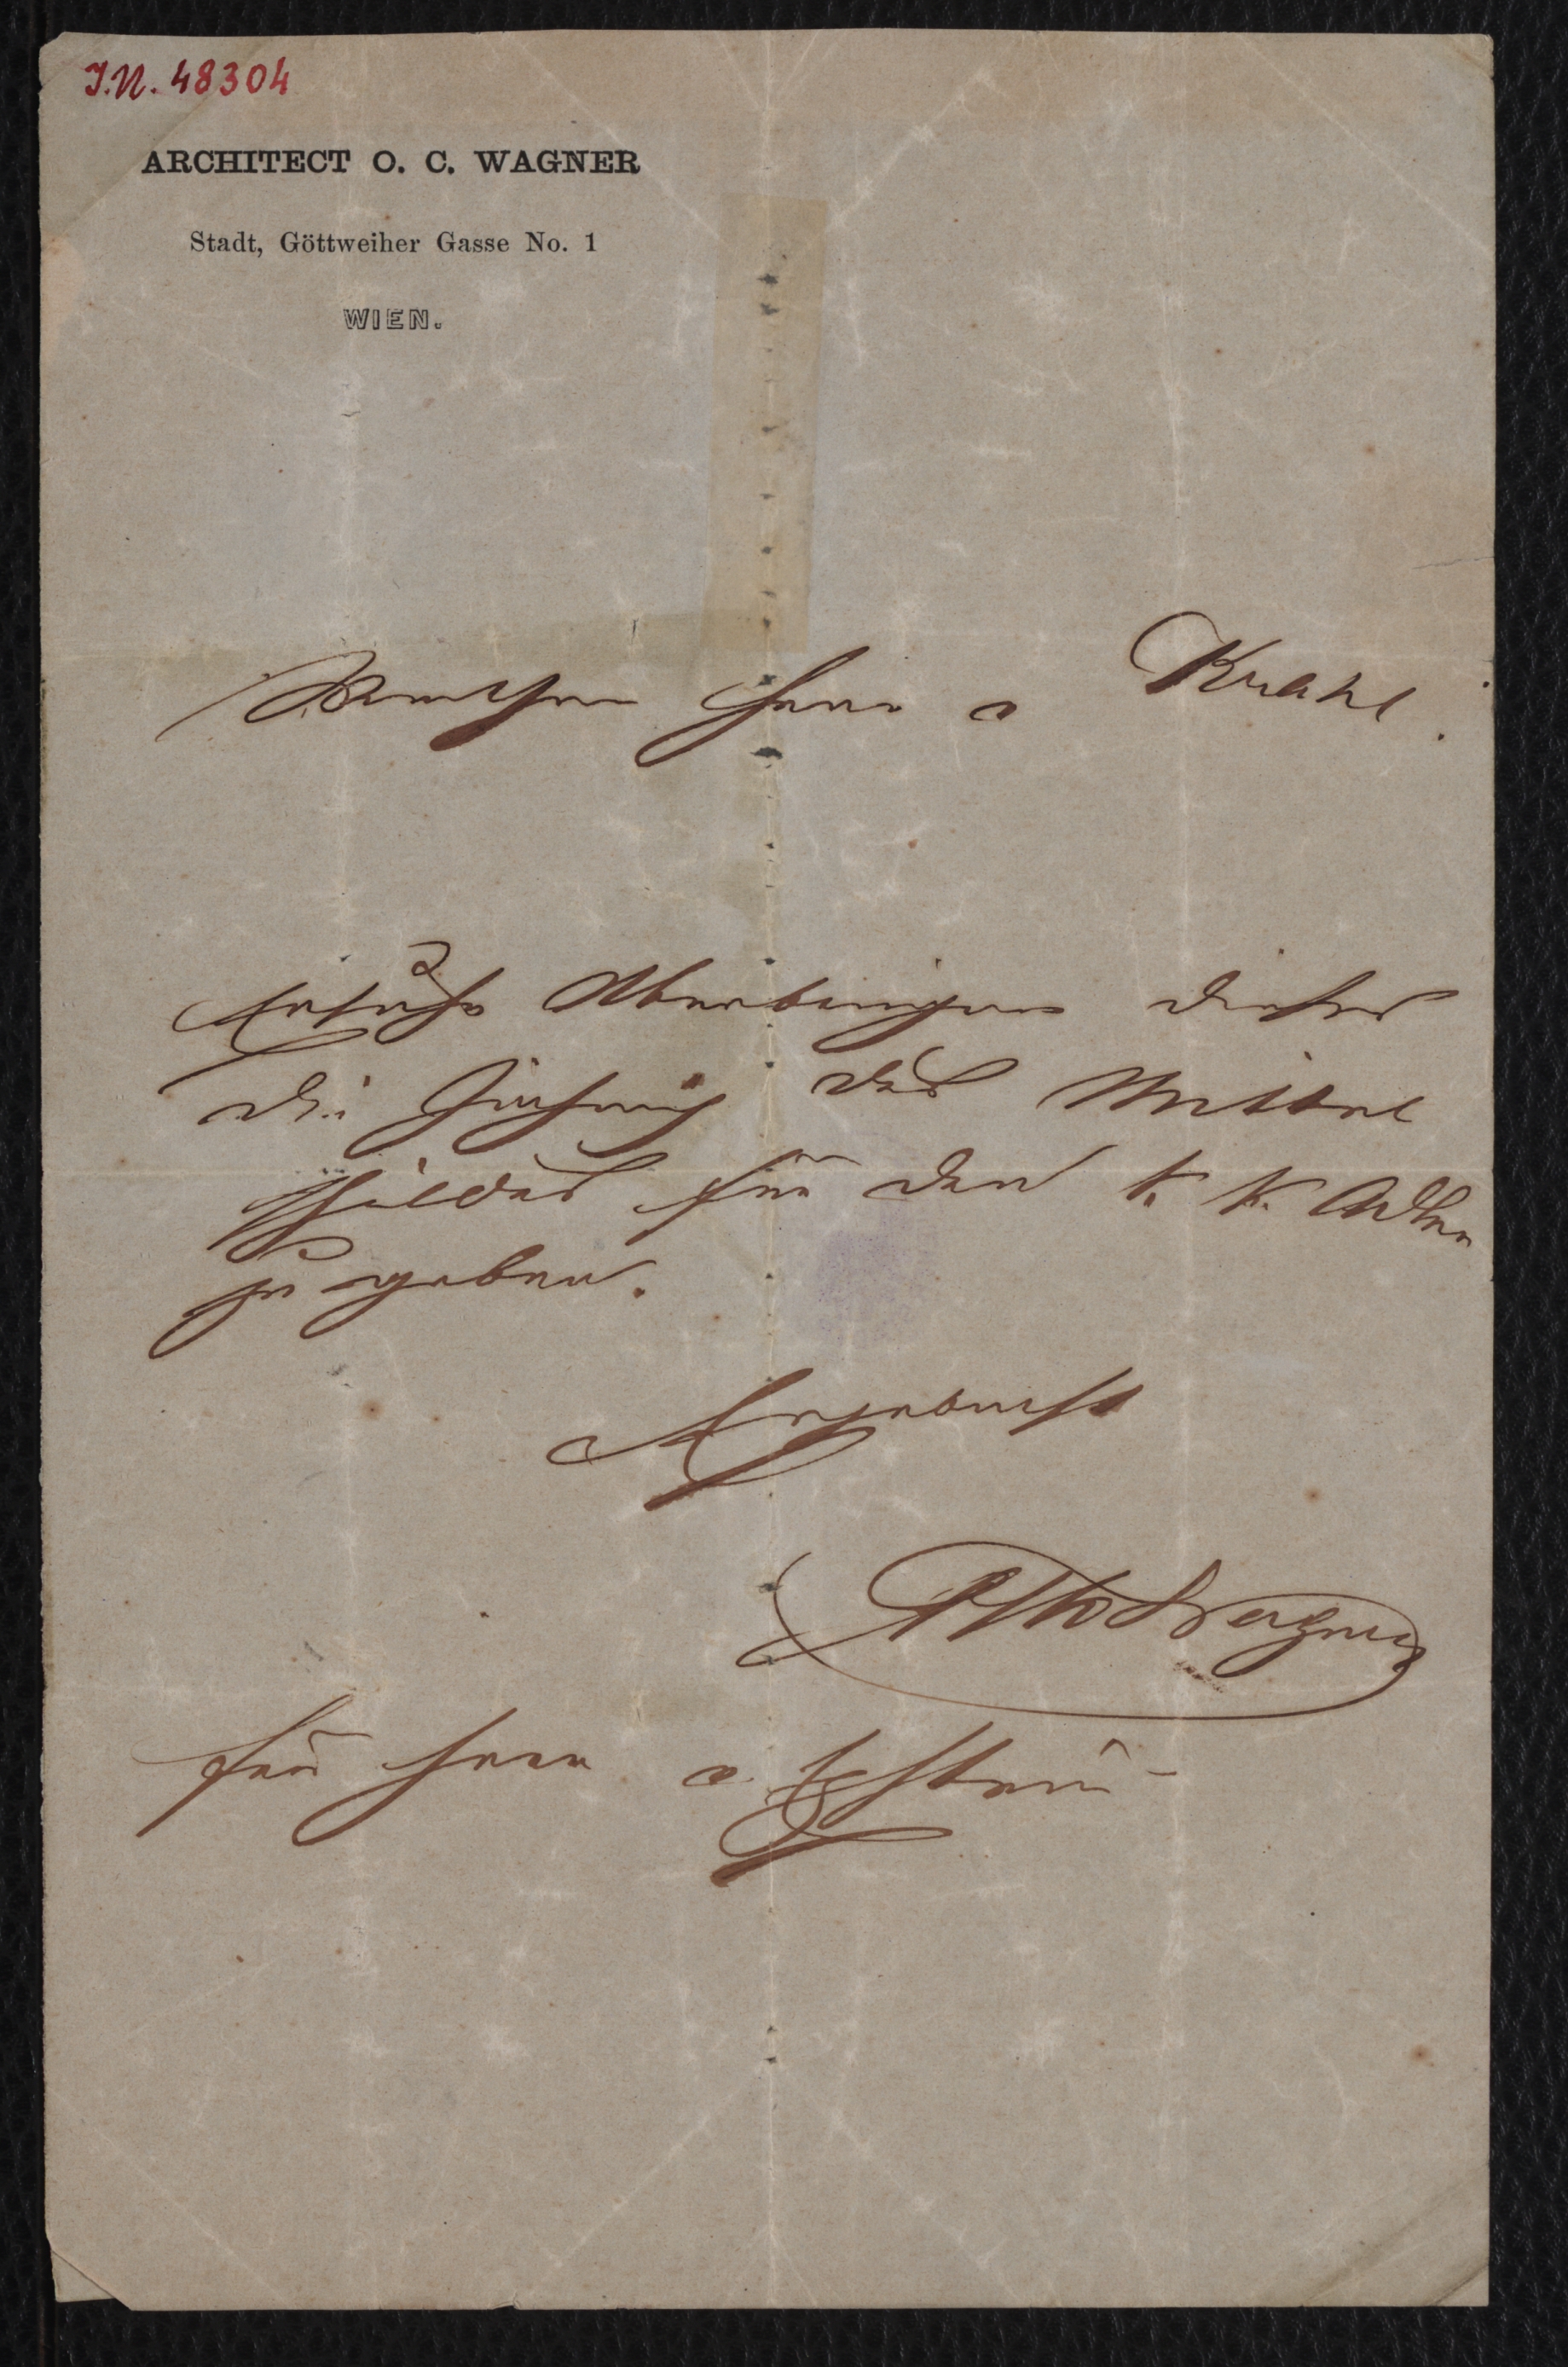 I.N. 48304
ARCHITECT O. C. WAGNER
Stadt, Göttweiher Gasse No. 1
WIEN.
Herr v Krahl.
Ersuche Überbringer dieses
die Zeichnung des Mittel
Schildes für den k. k. Adler
zu geben.
Ergebenst
Otto Wagner
für Herr v. Epstein